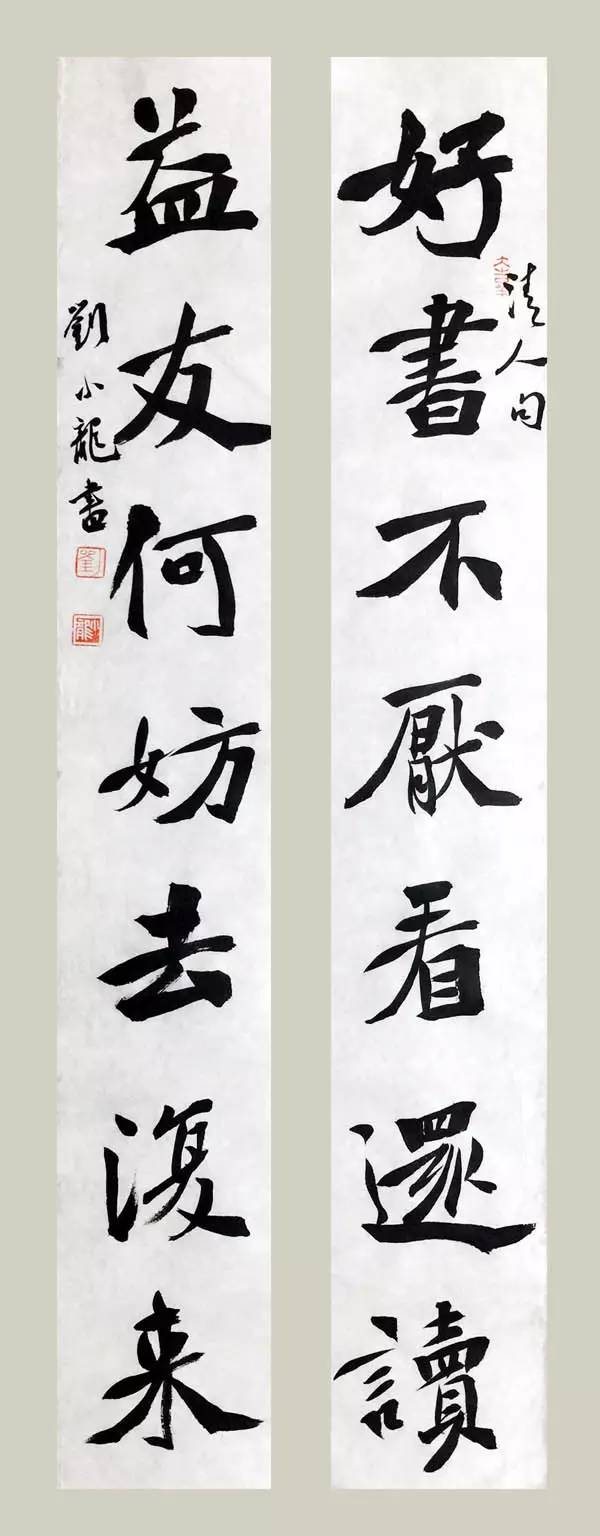 好書不厭看還讀
清人句
益友何妨去復来
劉小龍書